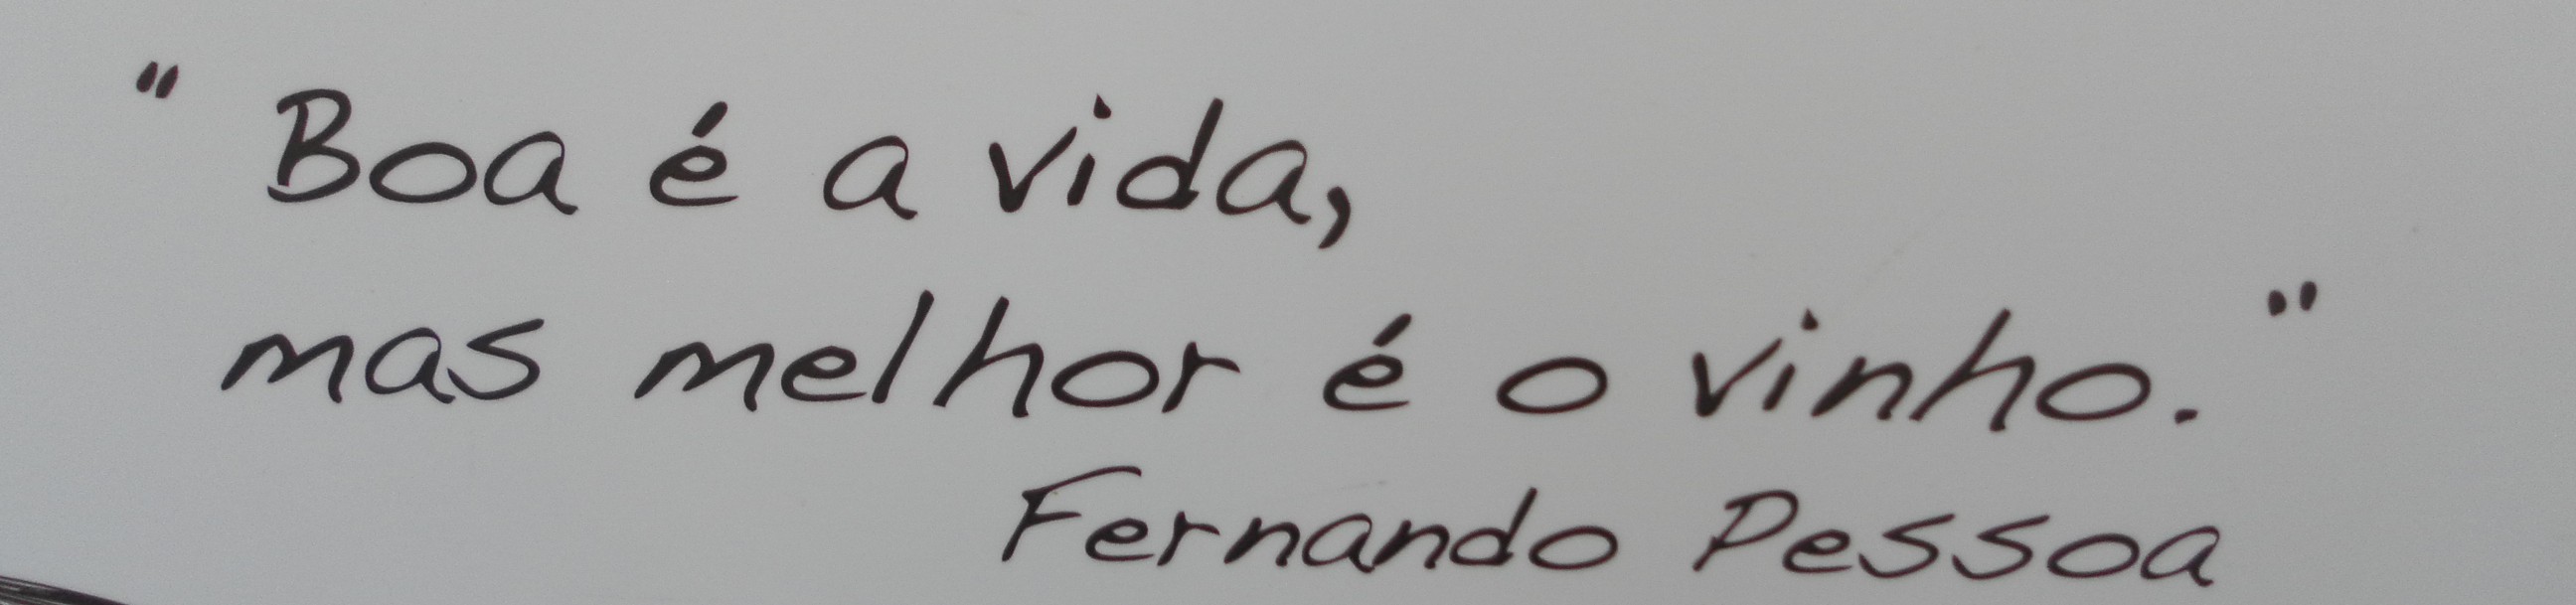 " Boa é a vida,
mas melhor é o vinho. "
Fernando Pessoa